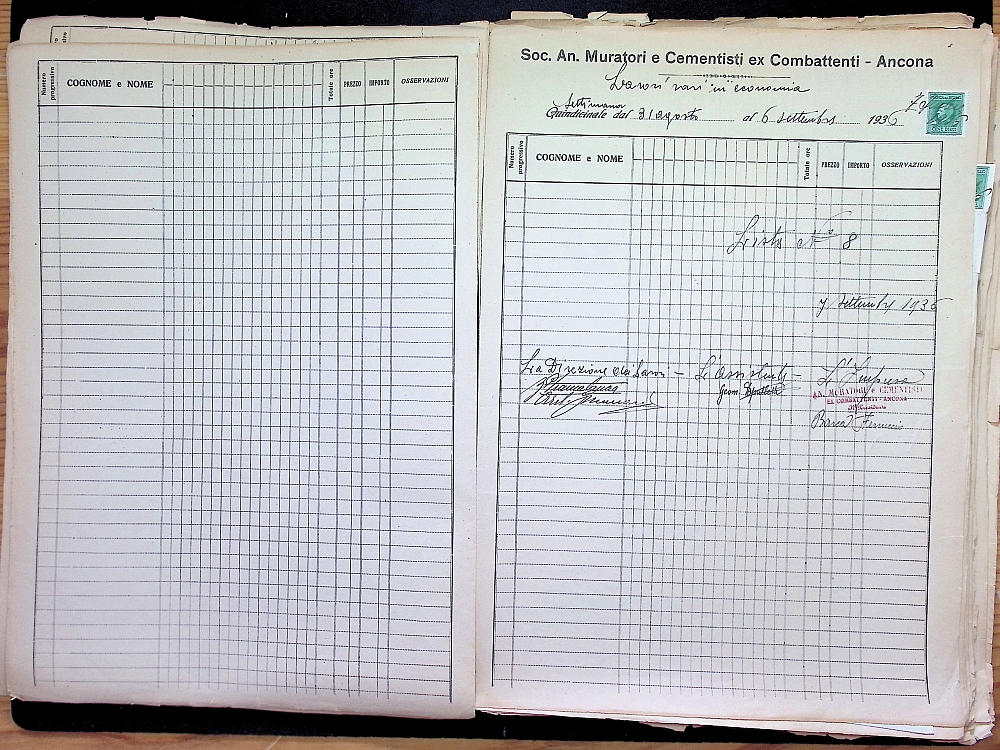 Numero progressivo
COGNOME e NOME
Totale ore
PREZZO
IMPORTO
OSSERVAZIONI
Soc. An. Muratori e Cementisti ex Combattenti - Ancona
Lavori vari in economia
Settimana
Quindicinale dal 31 agosto al 6 settembre 1936
Numero progressivo
COGNOME e NOME
Totale ore
PREZZO
IMPORTO
OSSERVAZIONI
Lista N° 8
7 settembre 1936
La Direzione dei Lavori - L'Assistente - L'Impresa
Geom.
AN. MURATORI e CEMENTISTI
EX COMBATTENTI - ANCONA
Il Presidente
Barca Ferruccio